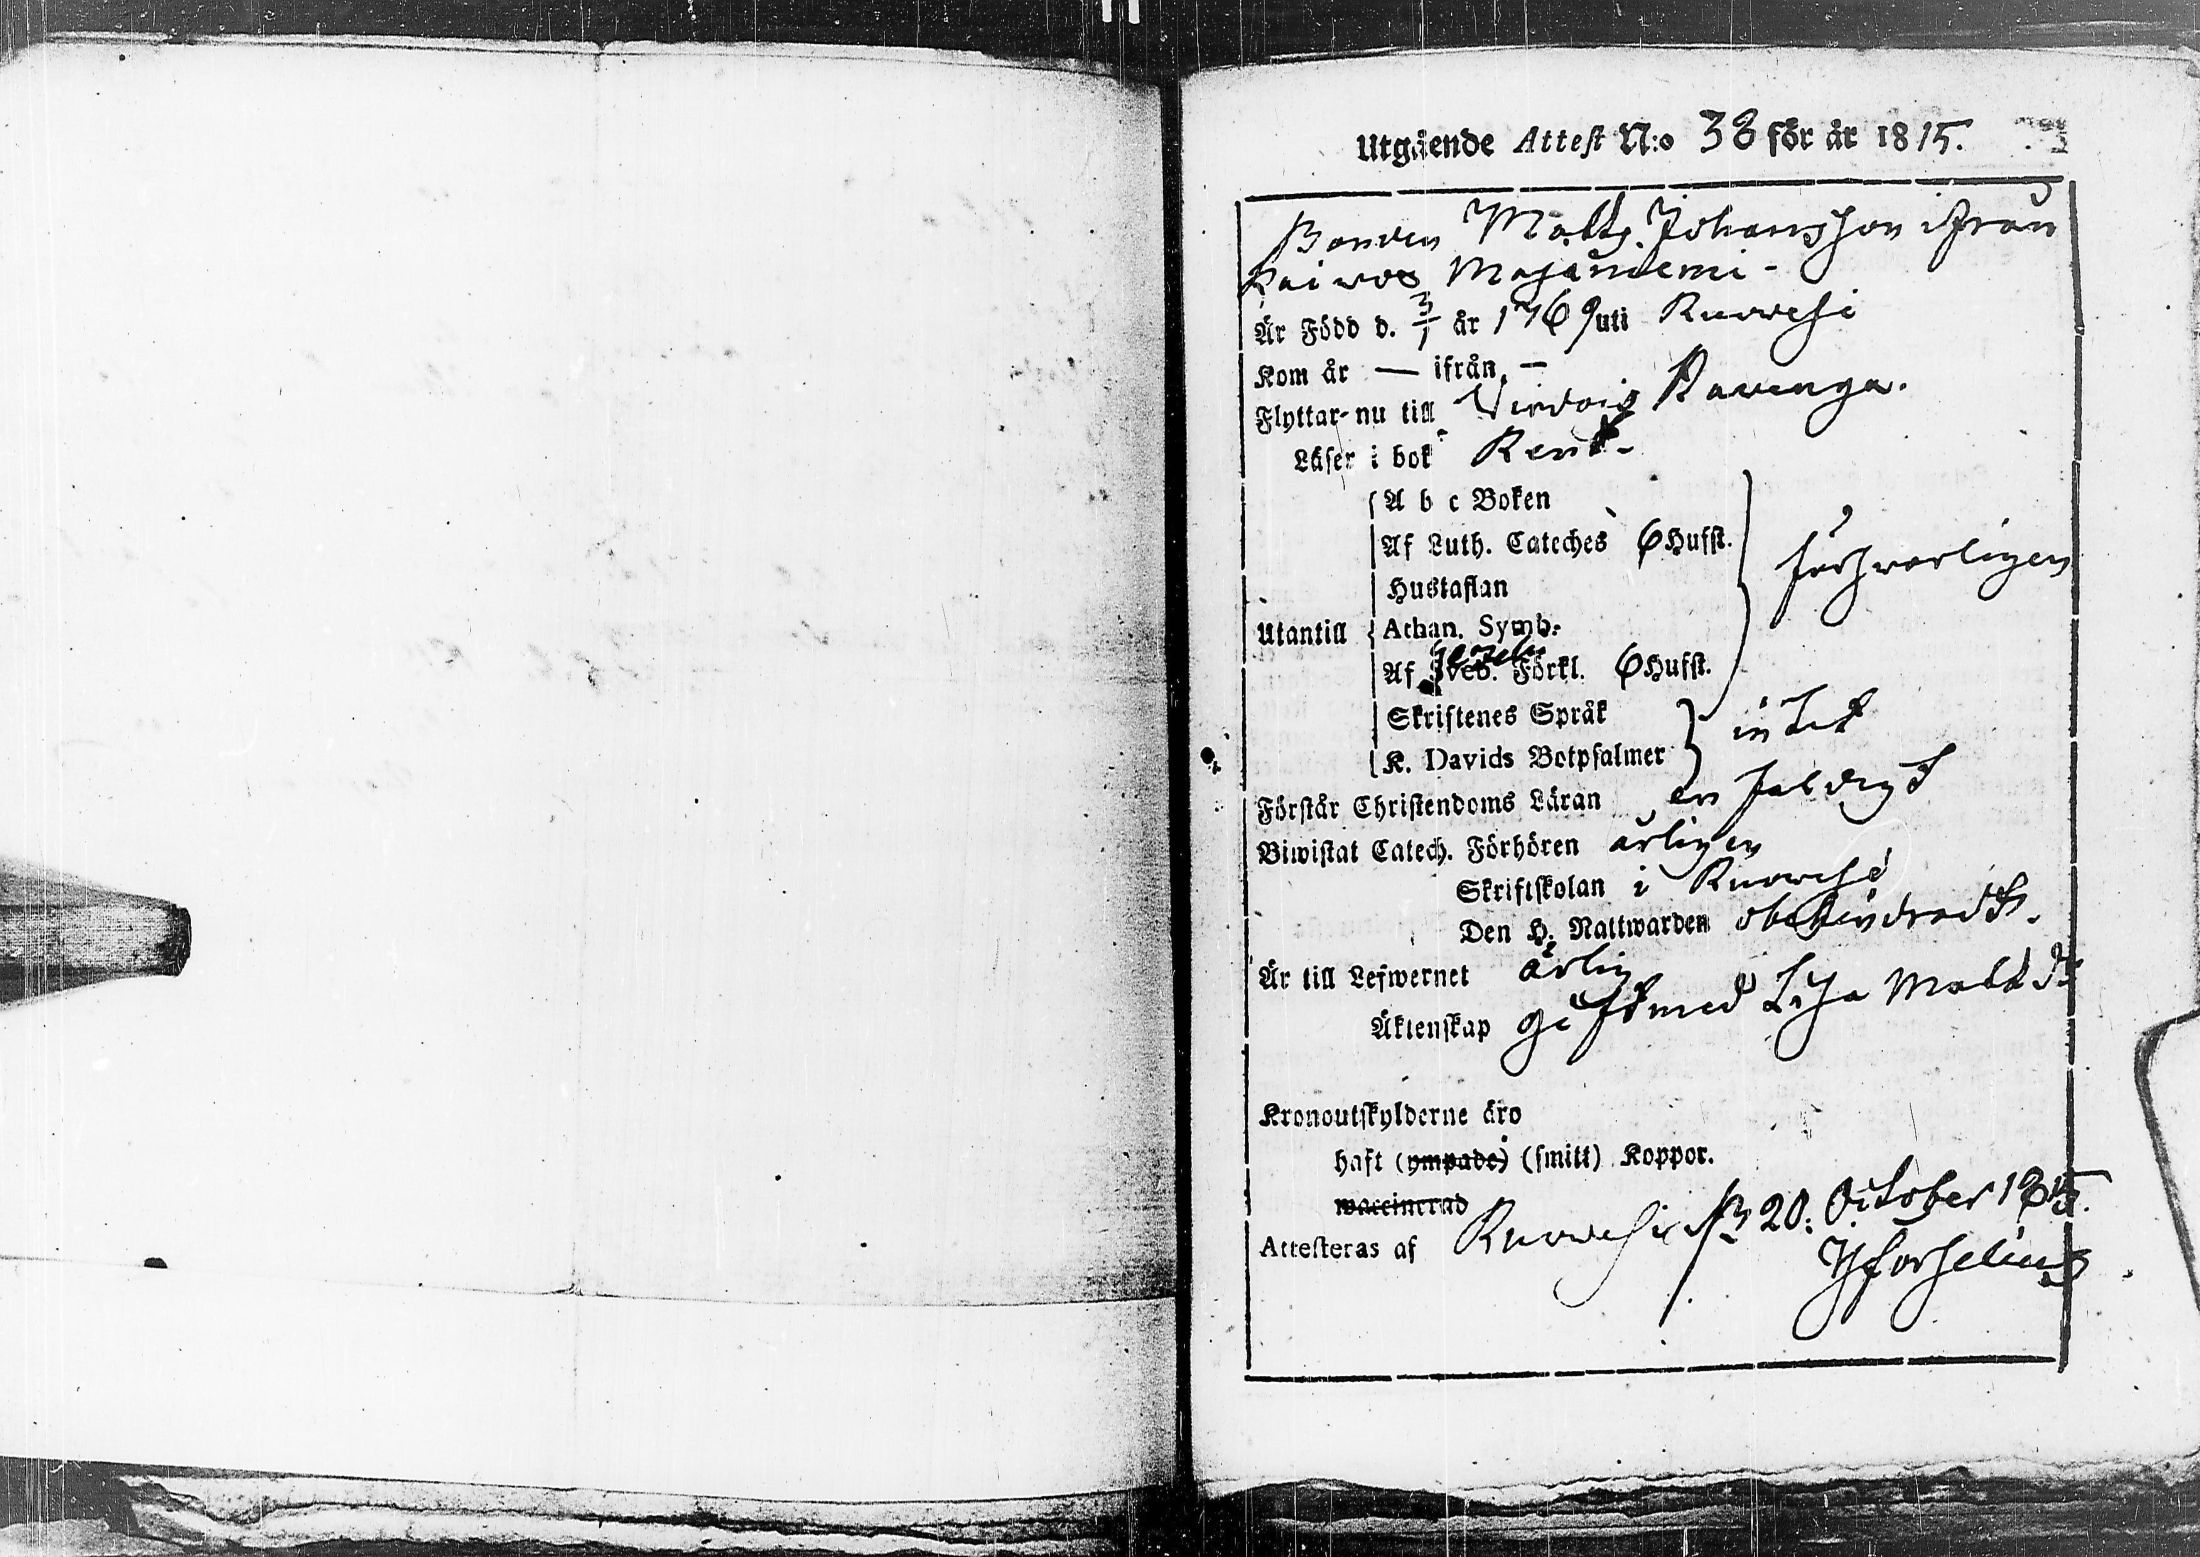 Utgående Attest N:o 38 för år 1815.
Bonden Matts Johansson ifrån
Kaiwos Majaniemi -
Är Född d. 3/1 år 1769 uti Ruovesi
Kom år — ifrån —
Flyttar nu till Virdois
Läser i bok Rent.
A b c Boken
Af Luth. Cateches 6 Hufst.
Hustaflan
försvarligen
Utantill Athan. Symb.
Af Sveb. Förkl. 6 Hufst.
Skriftenes Språk
intet
K. Davids Botpsalmer
Förstår Christendoms Läran enfaldigt
Biwistat Catech. Förhören årligen
Skriftskolan i Ruovesi
Den H. Nattwarden obehindradt.
Är till Lefwernet ärlig
Äktenskap gift med Lisa Matts dr
Kronoutskylderne äro
haft (ympade) (smitt) Koppor.
waccinerad
Attesteras af Ruovesi d. 20. October 1815.
H Forselius